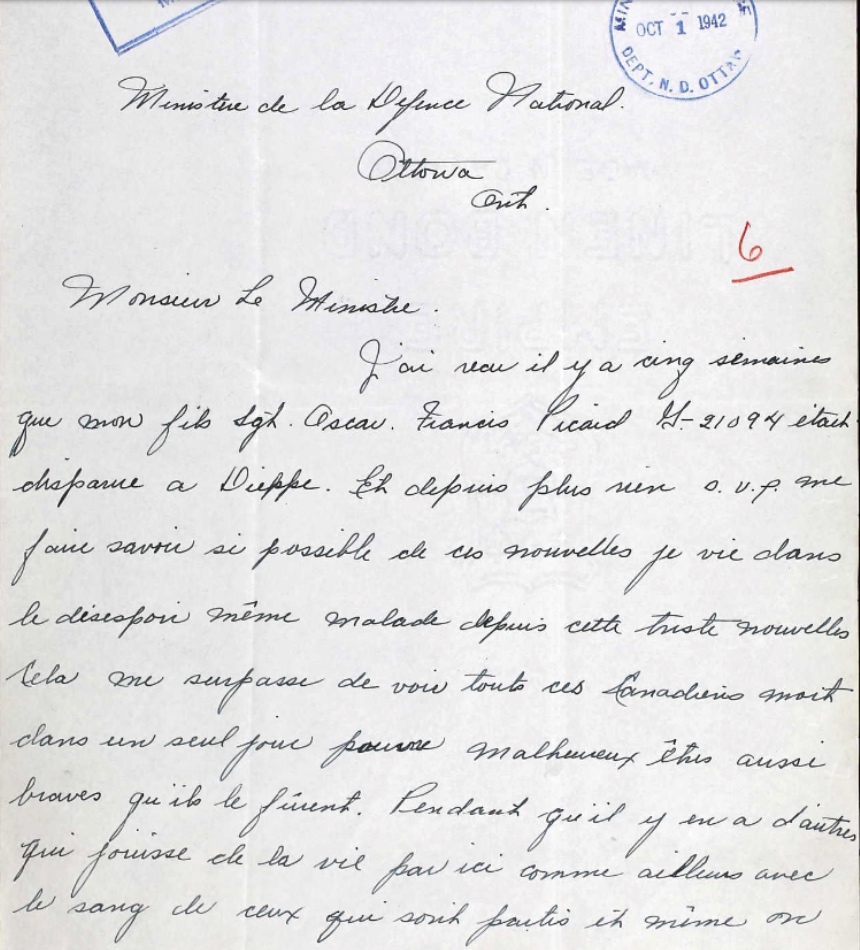 OCT 1 1942
DEPT. N. D. OTTAW
Ministre de la Defence National.
Ottowa
Ont.
6
Monsieur Le Ministre.
J'ai recu il y a cinq semaines
que mon fils Sgt. Oscar. Francis Picard G-21094 était
disparue a Dieppe. Et depuis plus rien s.v.p. me
faire savoir si possible de ces nouvelles je vie dans
le désespoir même malade depuis cette triste nouvelles
Cela me surpasse de voir touts ces Canadiens mort
dans un seul jour pauvre malheureux êtres aussi
braves qu'ils le fûrent. Pendant qu'il y en a d'autres
qui jouisse de la vie par ici comme ailleurs avec
le sang de ceux qui sont partis et même on